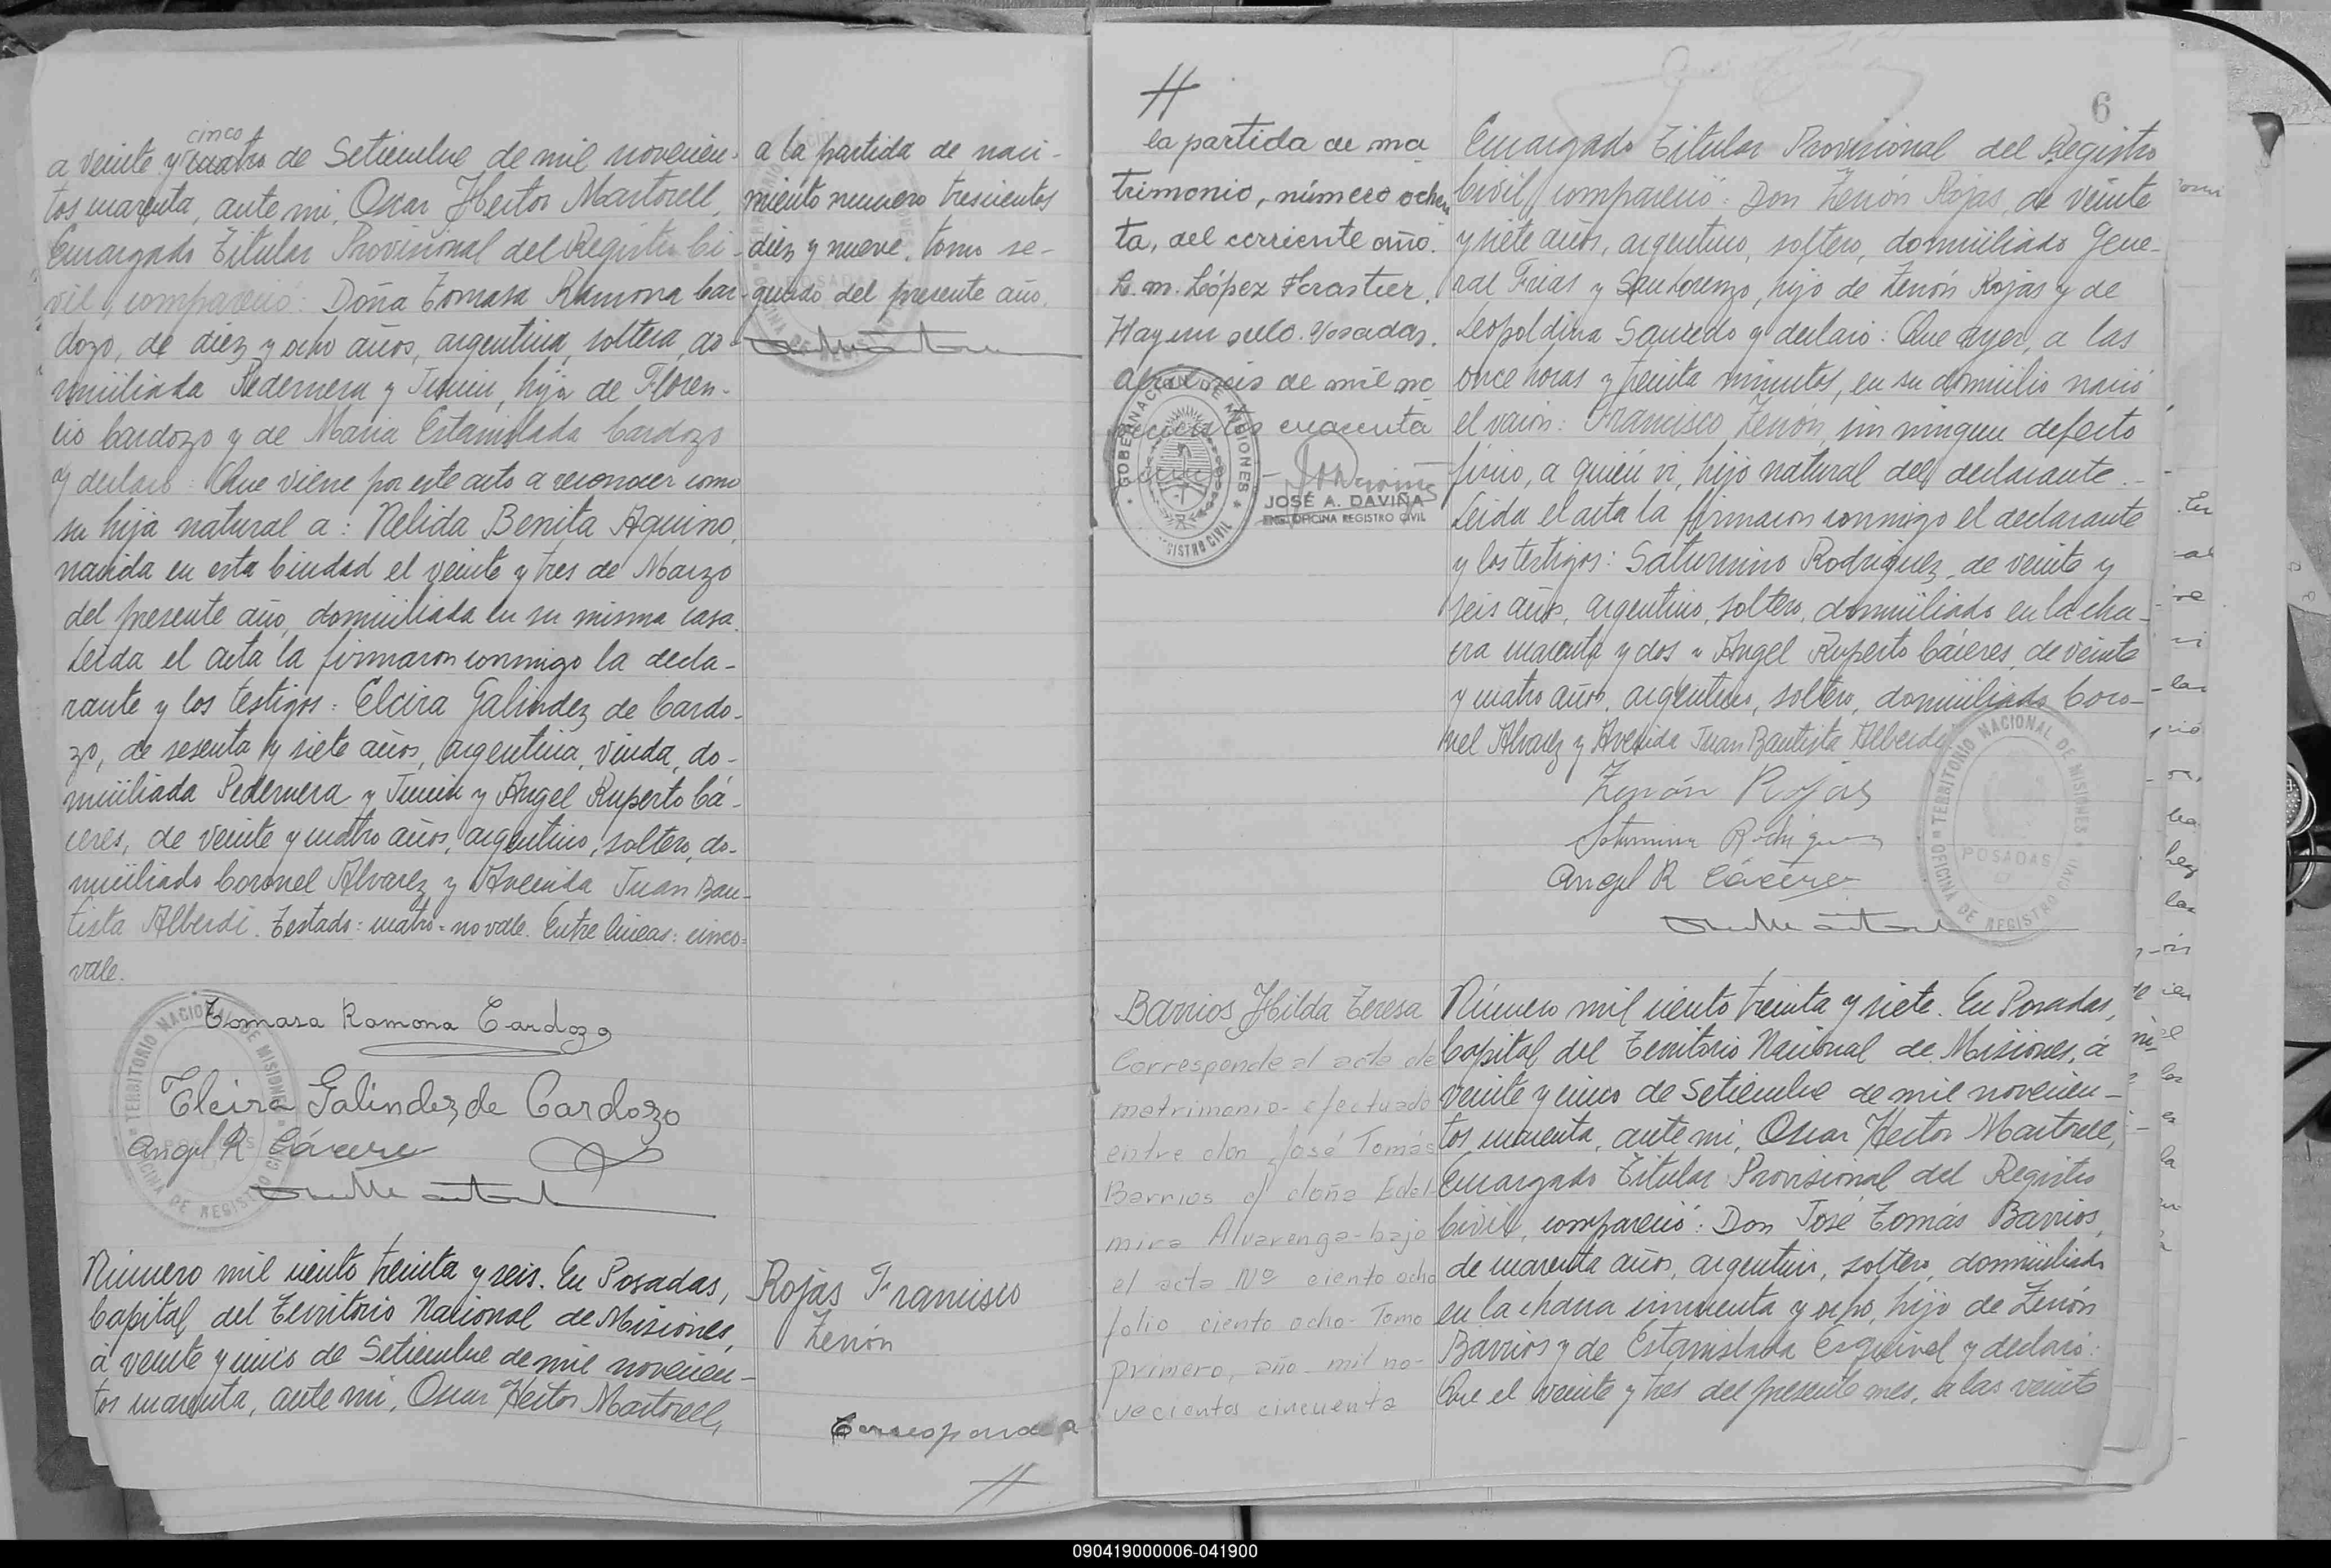 cinco
a veinte y cuatro de Setiembre de mil novecien-
tos cuarenta, ante mi, Oscar Hector Martorell,
Encargado Titular Provisional del Registro Ci-
vil, compareció: Doña Tomasa Ramona Car-
dozo, de diez y ocho años, argentina, soltera, do-
miciliada Pedernera y Junin, hija de Floren-
cio Cardozo y de Maria Estanislada Cardozo
y declaró: Que viene por este acto a reconocer como
su hija natural a: Nelida Benita Aquino,
nacida en esta Ciudad el veinte y tres de Marzo
del presente año, domiciliada en su misma casa.
Leida el acta la firmaron conmigo la decla-
rante y los testigos: Elcira Galindez de Cardo-
zo, de sesenta y siete años, argentina, viuda, do-
miciliada Pedernera y Junin y Angel Ruperto Cá-
ceres, de veinte y cuatro años, argentino, soltero, do-
miciliado Coronel Alvarez y Avenida Juan Bau-
tista Alberdi. Testado: cuatro = no vale. Entre lineas: cinco=
vale.
Tomasa Ramona Cardozo
Elcira Galindez de Cardozo
Angel R Cáceres
TERRITORIO NACIONAL DE MISIONES
POSADAS
OFICINA DE REGISTRO CIVIL
a la partida de naci-
miento numero trescientos
diez y nueve, tomo se-
gundo del presente año.
Número mil ciento treinta y seis. En Posadas,
Capital del Territorio Nacional de Misiones,
a veinte y cinco de Setiembre de mil novecien-
tos cuarenta, ante mi, Oscar Hector Martorell,
Rojas Francisco
Zenón
Corresponde a
//
//
la partida de ma
trimonio, número ochen
ta, del corriente año.
L. M. López Forastier.
Hay un sello. Posadas.
Abril seis de mil no
vecientos cuarenta
GOBERNACION DE MISIONES
REGISTRO CIVIL
JOSÉ A. DAVIÑA
ENC. OFICINA REGISTRO CIVIL
6
Encargado Titular Provisional del Registro
Civil, compareció: Don Zenón Rojas, de veinte
y siete años, argentino, soltero, domiciliado Gene-
ral Frias y San Lorenzo, hijo de Zenón Rojas y de
Leopoldina Saucedo y declaró: Que ayer, a las
once horas y treinta minutos, en su domicilio nació
el varón: Francisco Zenón, sin ningun defecto
fisico, a quién vi, hijo natural del declarante.-
Leida el acta la firmaron conmigo el declarante
y los testigos: Saturnino Rodriguez, de veinte y
seis años, argentino, soltero, domiciliado en la cha-
cra cuarenta y dos y Angel Ruperto Cáceres, de veinte
y cuatro años, argentino, soltero, domiciliado Coro-
nel Alvarez y Avenida Juan Bautista Alberdi
Zenón Rojas
Saturnino Rodriguez
Angel R Cáceres
TERRITORIO NACIONAL DE MISIONES
POSADAS
OFICINA DE REGISTRO CIVIL
Barrios Hilda Teresa
Corresponde al acta de
matrimonio- efectuado
entre don José Tomás
Barrios y doña Edel
mira Alvarenga-bajo
el acta Nº ciento ocho
folio ciento ocho- Tomo
primero, año mil no-
vecientos cincuenta
Número mil ciento treinta y siete. En Posadas,
Capital del Territorio Nacional de Misiones, a
veinte y cinco de Setiembre de mil novecien-
tos cuarenta, ante mi, Oscar Hector Martorell,
Encargado Titular Provisional del Registro
Civil, compareció: Don José Tomás Barrios,
de cuarenta años, argentino, soltero, domiciliado
en la chacra cincuenta y ocho, hijo de Zenón
Barrios y de Estanislada Esquivel y declaró:
Que el veinte y tres del presente mes, a las veinte
090419000006-041900